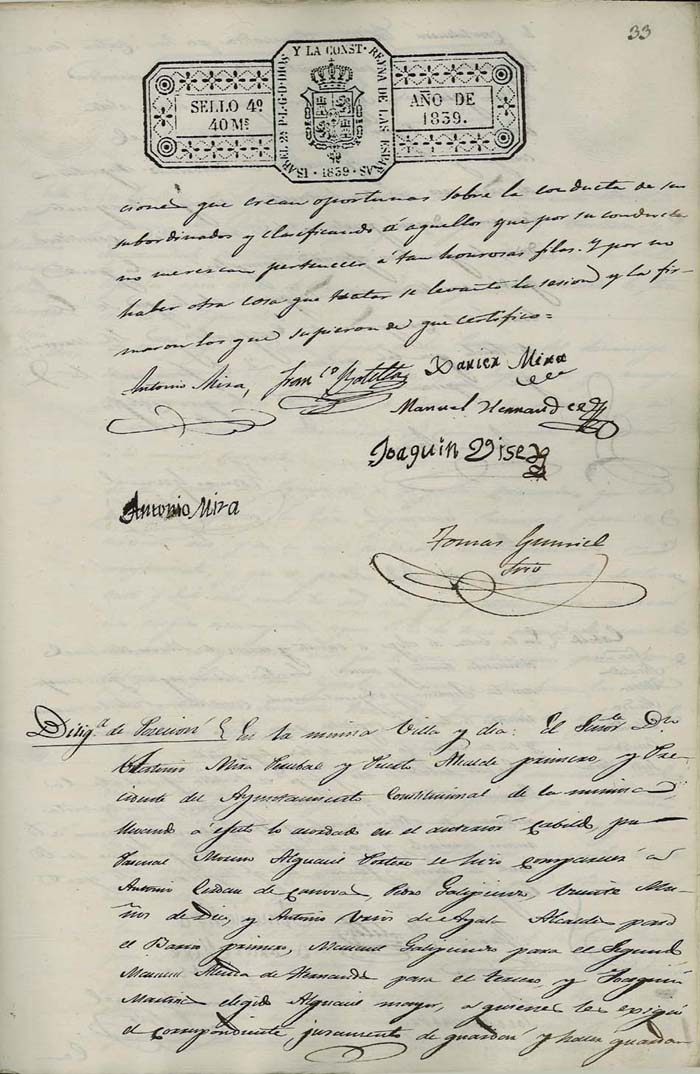 33
ISABEL 2ª P.L.G.D.DIOS Y LA CONST. REYNA DE LAS ESPAÑAS
SELLO 4º
40 Ms
AÑO DE
1839.
1839
ciones que crean oportunas sobre la conducta de sus
subordinados y clasificando á aquellos que por su conducta
no merezcan pertenecer á tan honrosas filas. Y por no
haber otra cosa que tratar se levanto la sesion y la fir-
maron los que supieron de que certifico=
Antonio Mira, Franco Botella Xavier Mira
Manuel Hernandez
Joaquin
Antonio Mira
Tomas
Srio
Diliga de Posecion En la misma Villa y dia: El Señor Dn
Antonio Mira Alcalde primero, y Pre-
cidente del Ayuntamiento Constitucional de la misma
llevando á efecto lo acordado en el anterior Cabildo, por
Pascual Moreno Alguacil Portero se hizo comparecer á
Antonio de Canova, Pedro Galipienzo, Vicente Mu-
ños de Dios, y Antonio de Ayala Alcaldes para
el Barrio primero, Manuel Galipienzo para el Segundo
Manuel de Hernandez para el tercero, y Joaquin
Martinez elegido Alguacil mayor, a quienes les exigió
el correspondiente juramento de guardar y hacer guardar